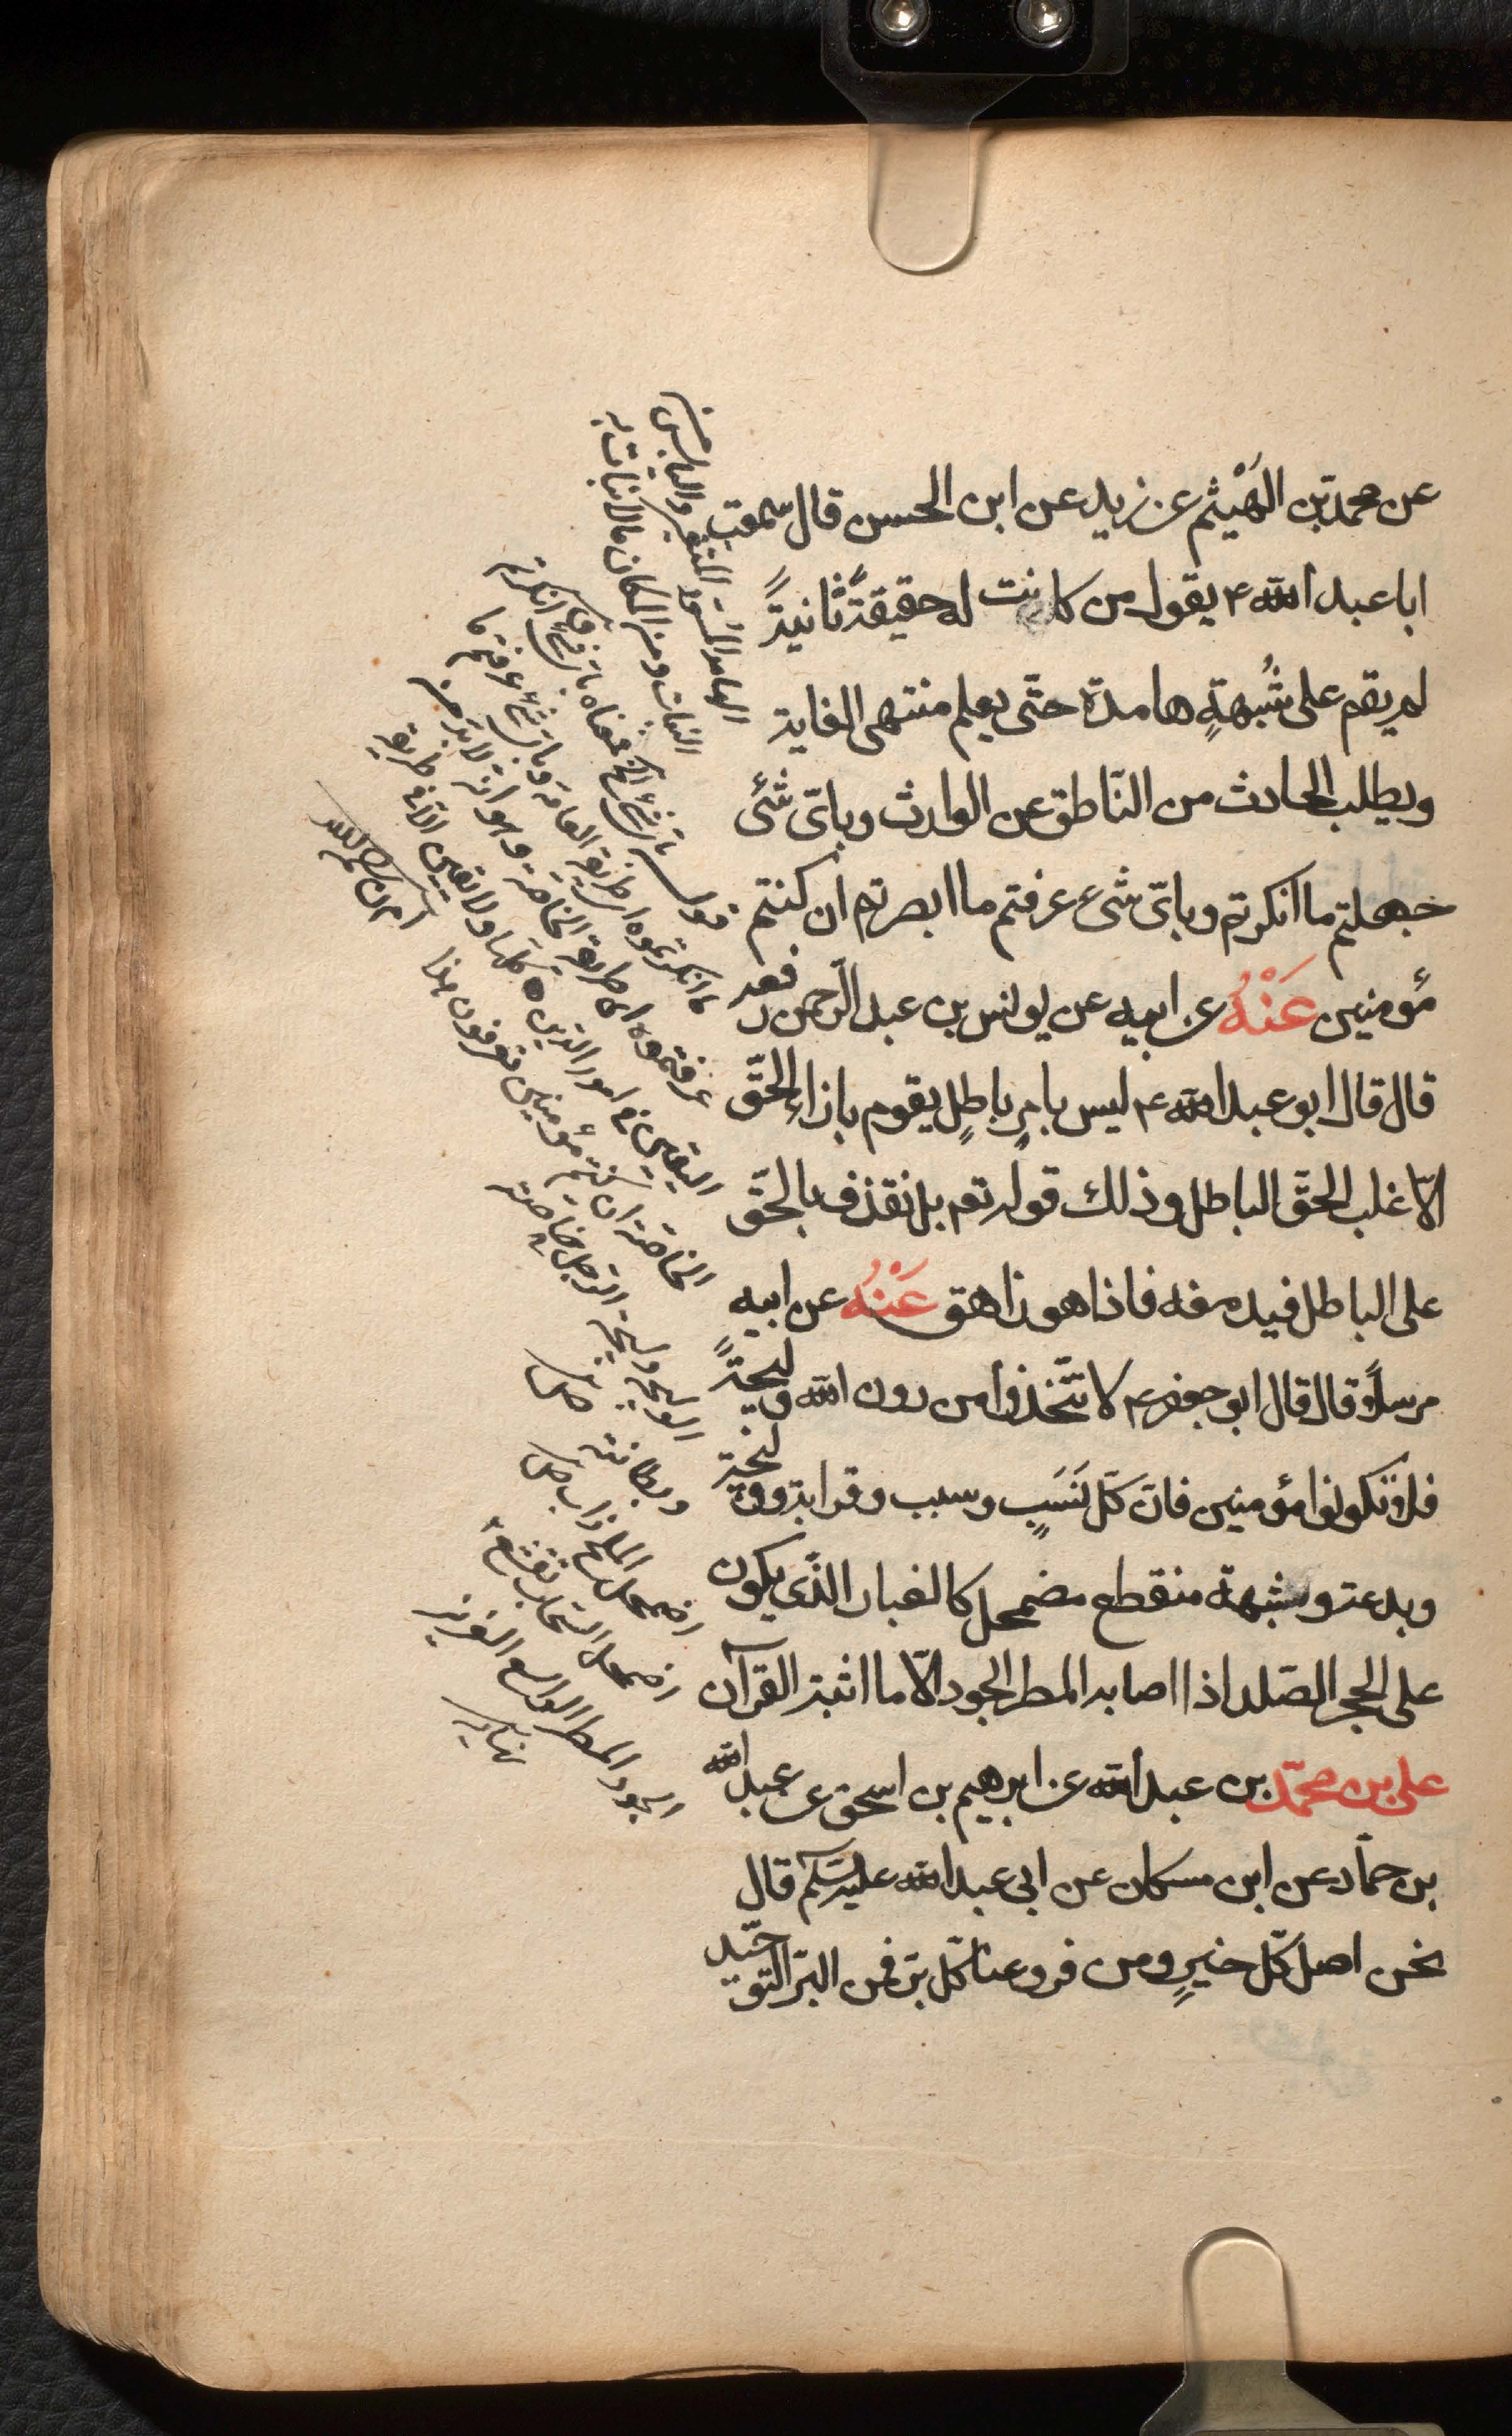 عن محمد بن الهَيْثم عن زيد عن ابن الحسن قال سمعت
ابا عبد الله ع يقول من كانت له حقيقةً ثانيةً
لم يقم على شُبهةٍ هامدة حتّى يعلم منتهى الغاية
ويطلب الحادث من النّاطق عن الوارث وبايّ شئ
جهلتم ما انكرتم وبايّ شئ عرفتم ما ابصرتم ان كنتم
مؤمنين عَنْهُ عن ابيه عن يونس بن عبد الرّحمن رفعه
قال قال ابو عبد الله ع ليس بامرٍ باطلٍ يقوم بازاءِ الحقّ
الّا غلب الحقّ الباطل وذلك قوله تعم بل نقذف بالحقّ
على الباطل فيدمغه فاذا هو زاهق عَنْهُ عن ابيه
مرسلاً قال قال ابو جعفر ع لا تتّخذوا من دون الله وليجةً
فلا تكونوا مؤمنين فانّ كلّ نَسَبٍ وسبب وقرابة ووليجة
وبدعة وشبهة منقطع مضمحل كالغبار الّذى يكون
على الحجر الصّلد اذا اصابه المطر الجود الّا ما اثبته القرآن
على بن محمّد بن عبد الله عن ابرهيم بن اسحق عن عبد الله
بن حماد عن ابن مسكان عن ابى عبد الله عليه السّلم قال
نحن اصل كلّ خيرٍ ومن فروعنا كلّ برّ فمن البرّ التوحيد
الهامد المسودّ المتغير واليابس من
النبات ومن المكان ما لا نبات به
قوله باىّ شئ الخ معناه باى شئ انكرتم
ما انكرتموه اى طريقة العامة وباى شئ عرفتم ما
عرفتموه اى طريقة الخاصة وهو انه لا بدّ من
اليقين فى امور الدين كلها ولا يقين الّا فى طريقة
الخاصة ان كنتم مؤمنين تعرفون هذا
الوليجة وليجة الرّجل خاصته
وبطانته
اضمحل الملح ذاب
اضمحل السّحاب تقشّع
الجود المطر الواسع الغزير
نهاية